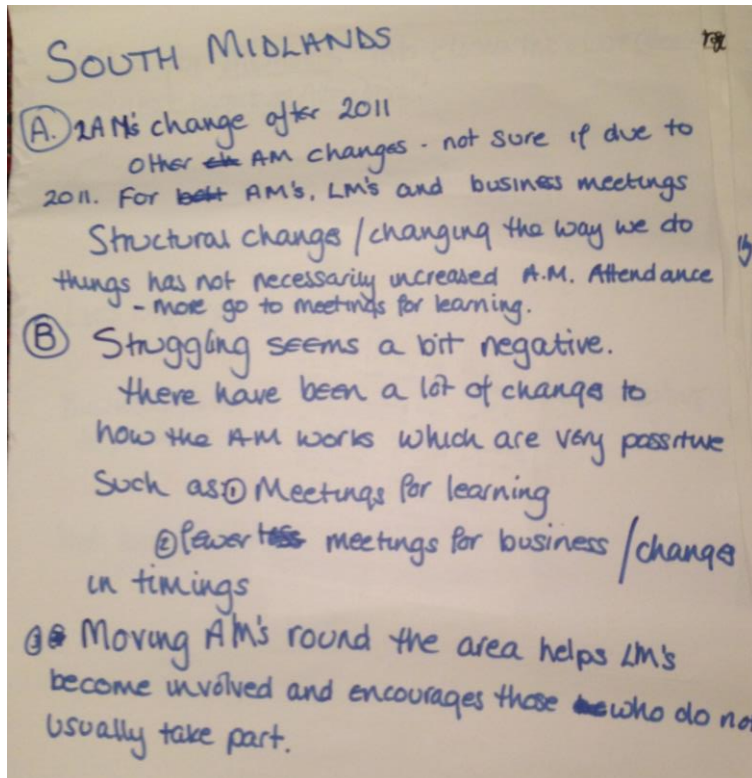 SOUTH MIDLANDS
A. 2AM's change after 2011
Other AM changes - not sure if due to
2011. For AM's, LM's and business meetings
Structural changes / changing the way we do
things has not necessarily increased A.M. Attendance
- more go to meetings for learning.
B Struggling seems a bit negative.
there have been a lot of changes to
how the AM works which are very possitive
Such as: ① Meetings for learning
② fewer meetings for business / changes
in timings
③ Moving AM's round the area helps LM's
become involved and encourages those who do not
usually take part.